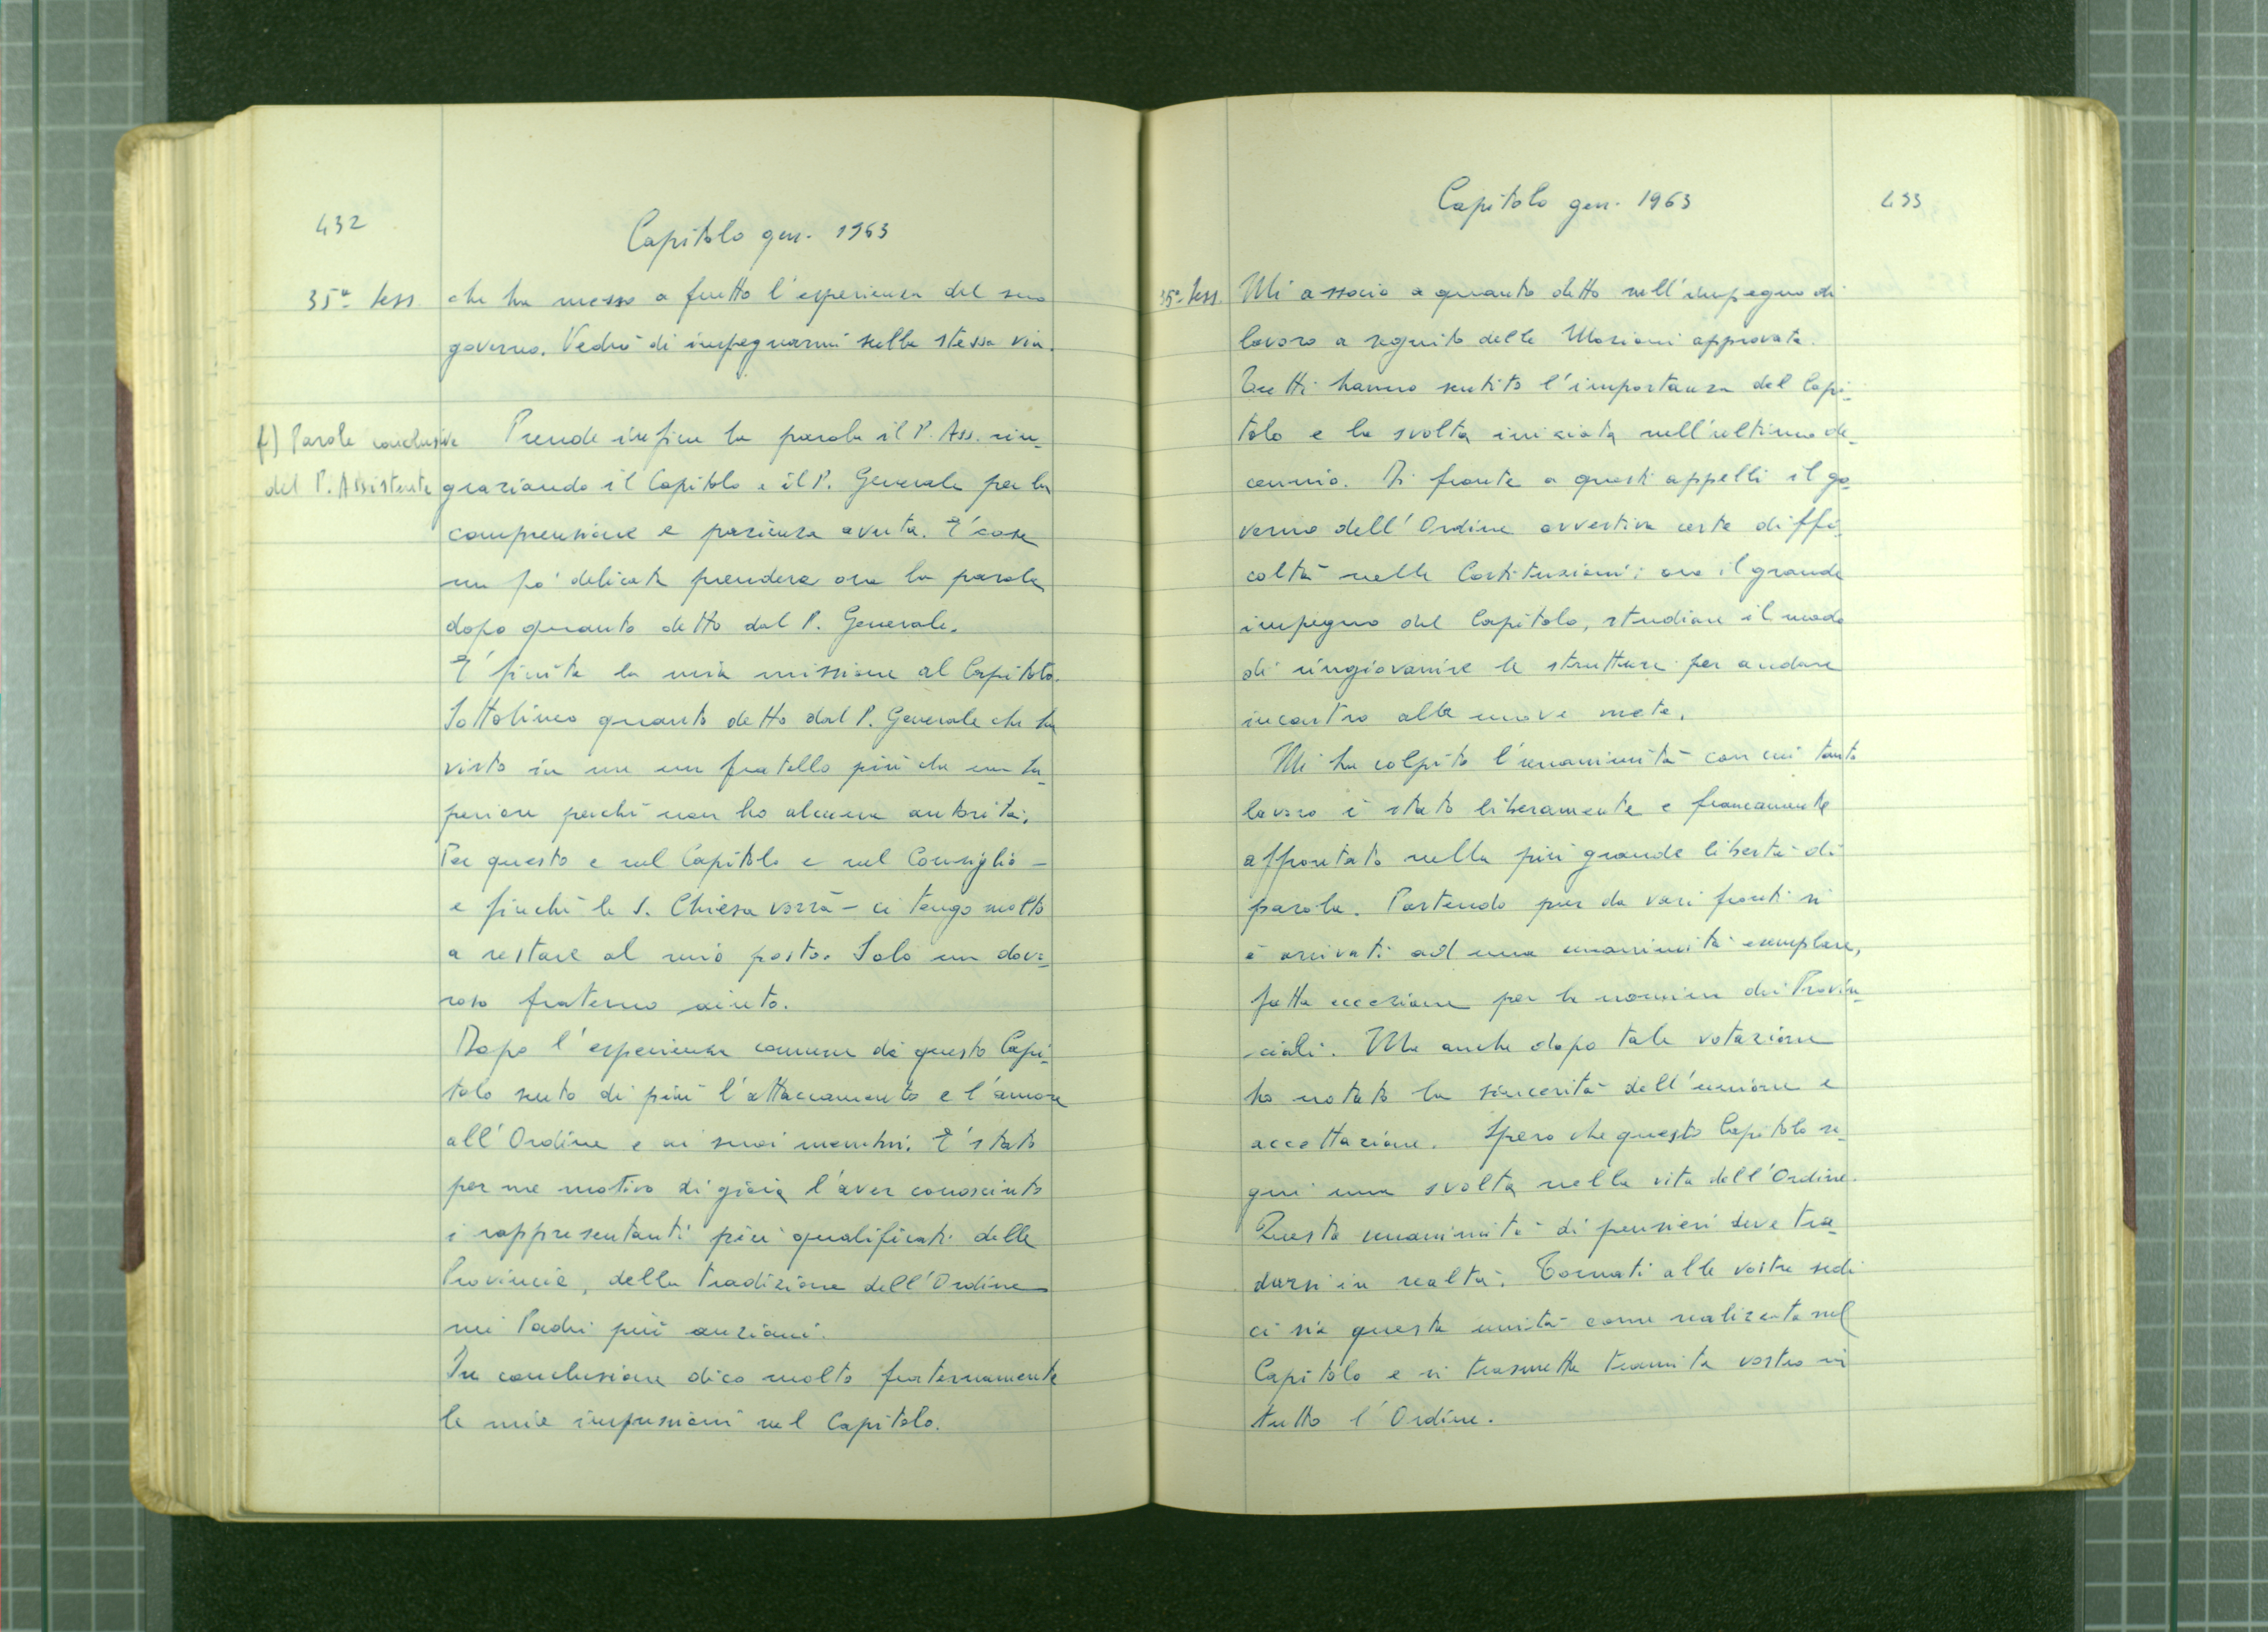 432
Capitolo gen. 1963
35ª Sess
che ha messo a frutto l'esperienza del suo
governo. Vedrò di impegnarmi sulla stessa via.
f) Parole conclusive
del P. Assistente
Prende infine la parola il P. Ass. rin-
graziando il Capitolo e il P. Generale per la
comprensione e pazienza avuta. E' cosa
un po' delicata prendere ora la parola
dopo quanto detto dal P. Generale.
E' finita la mia missione al Capitolo.
Sottolineo quanto detto dal P. Generale che ha
visto in me un fratello più che un su-
periore perché non ho alcuna autorità.
Per questo e nel Capitolo e nel Consiglio -
e finché la S. Chiesa vorrà - ci tengo molto
a restare al mio posto. Solo un dove-
roso fraterno aiuto.
Dopo l'esperienza comune di questo Capi-
tolo sento di più l'attaccamento e l'amore
all'Ordine e ai suoi membri. E' stato
per me motivo di gioia l'aver conosciuto
i rappresentanti più qualificati delle
Provincie, della tradizione dell'Ordine
nei Padri più anziani.
In conclusione dico molto fraternamente
le mie impressioni sul Capitolo.
Capitolo gen. 1963
433
35ª Sess.
Mi associo a quanto detto sull'impegno di
lavoro a seguito delle Mozioni approvate.
Tutti hanno sentito l'importanza del Capi-
tolo e la svolta iniziata nell'ultimo de-
cennio. Di fronte a questi appelli il go-
verno dell'Ordine avvertiva certe diffi-
coltà nelle Costituzioni; ora il grande
impegno del Capitolo, studiare il modo
di ringiovanire le strutture per andare
incontro alle nuove mete.
Mi ha colpito l'unanimità con cui tanto
lavoro è stato liberamente e francamente
affrontato nella più grande libertà di
parola. Partendo pur da vari fronti si
è arrivati ad una unanimità esemplare,
fatta eccezione per la nomina dei Provin-
ciali. Ma anche dopo tale votazione
ho notato la sincerità dell'unione e
accettazione. Spero che questo Capitolo se-
gni una svolta nella vita dell'Ordine.
Questa unanimità di pensieri deve tra-
dursi in realtà. Tornati alle vostre sedi
ci sia questa unità come realizzata nel
Capitolo e si trasmetta tramite vostro in
tutto l'Ordine.